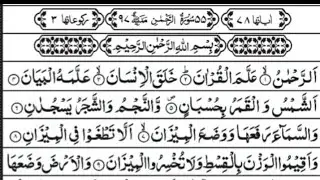 اٰیاتها ٧٨ ٥٥ سُوْرَةُ الرَّحْمٰنِ مَدَنِيَّةٌ ٩٧ رکوعاتها ٣
بِسْمِ اللّٰهِ الرَّحْمٰنِ الرَّحِيْمِ
اَلرَّحْمٰنُ ۙ١ عَلَّمَ الْقُرْاٰنَ ۙ٢ خَلَقَ الْاِنْسَانَ ۙ٣ عَلَّمَهُ الْبَيَانَ ٤
اَلشَّمْسُ وَ الْقَمَرُ بِحُسْبَانٍ ۪٥ وَّ النَّجْمُ وَ الشَّجَرُ يَسْجُدٰنِ ٦
وَ السَّمَآءَ رَفَعَهَا وَ وَضَعَ الْمِيْزَانَ ۙ٧ اَلَّا تَطْغَوْا فِي الْمِيْزَانِ ٨
وَ اَقِيْمُوا الْوَزْنَ بِالْقِسْطِ وَ لَا تُخْسِرُوا الْمِيْزَانَ ٩ وَ الْاَرْضَ وَضَعَهَا